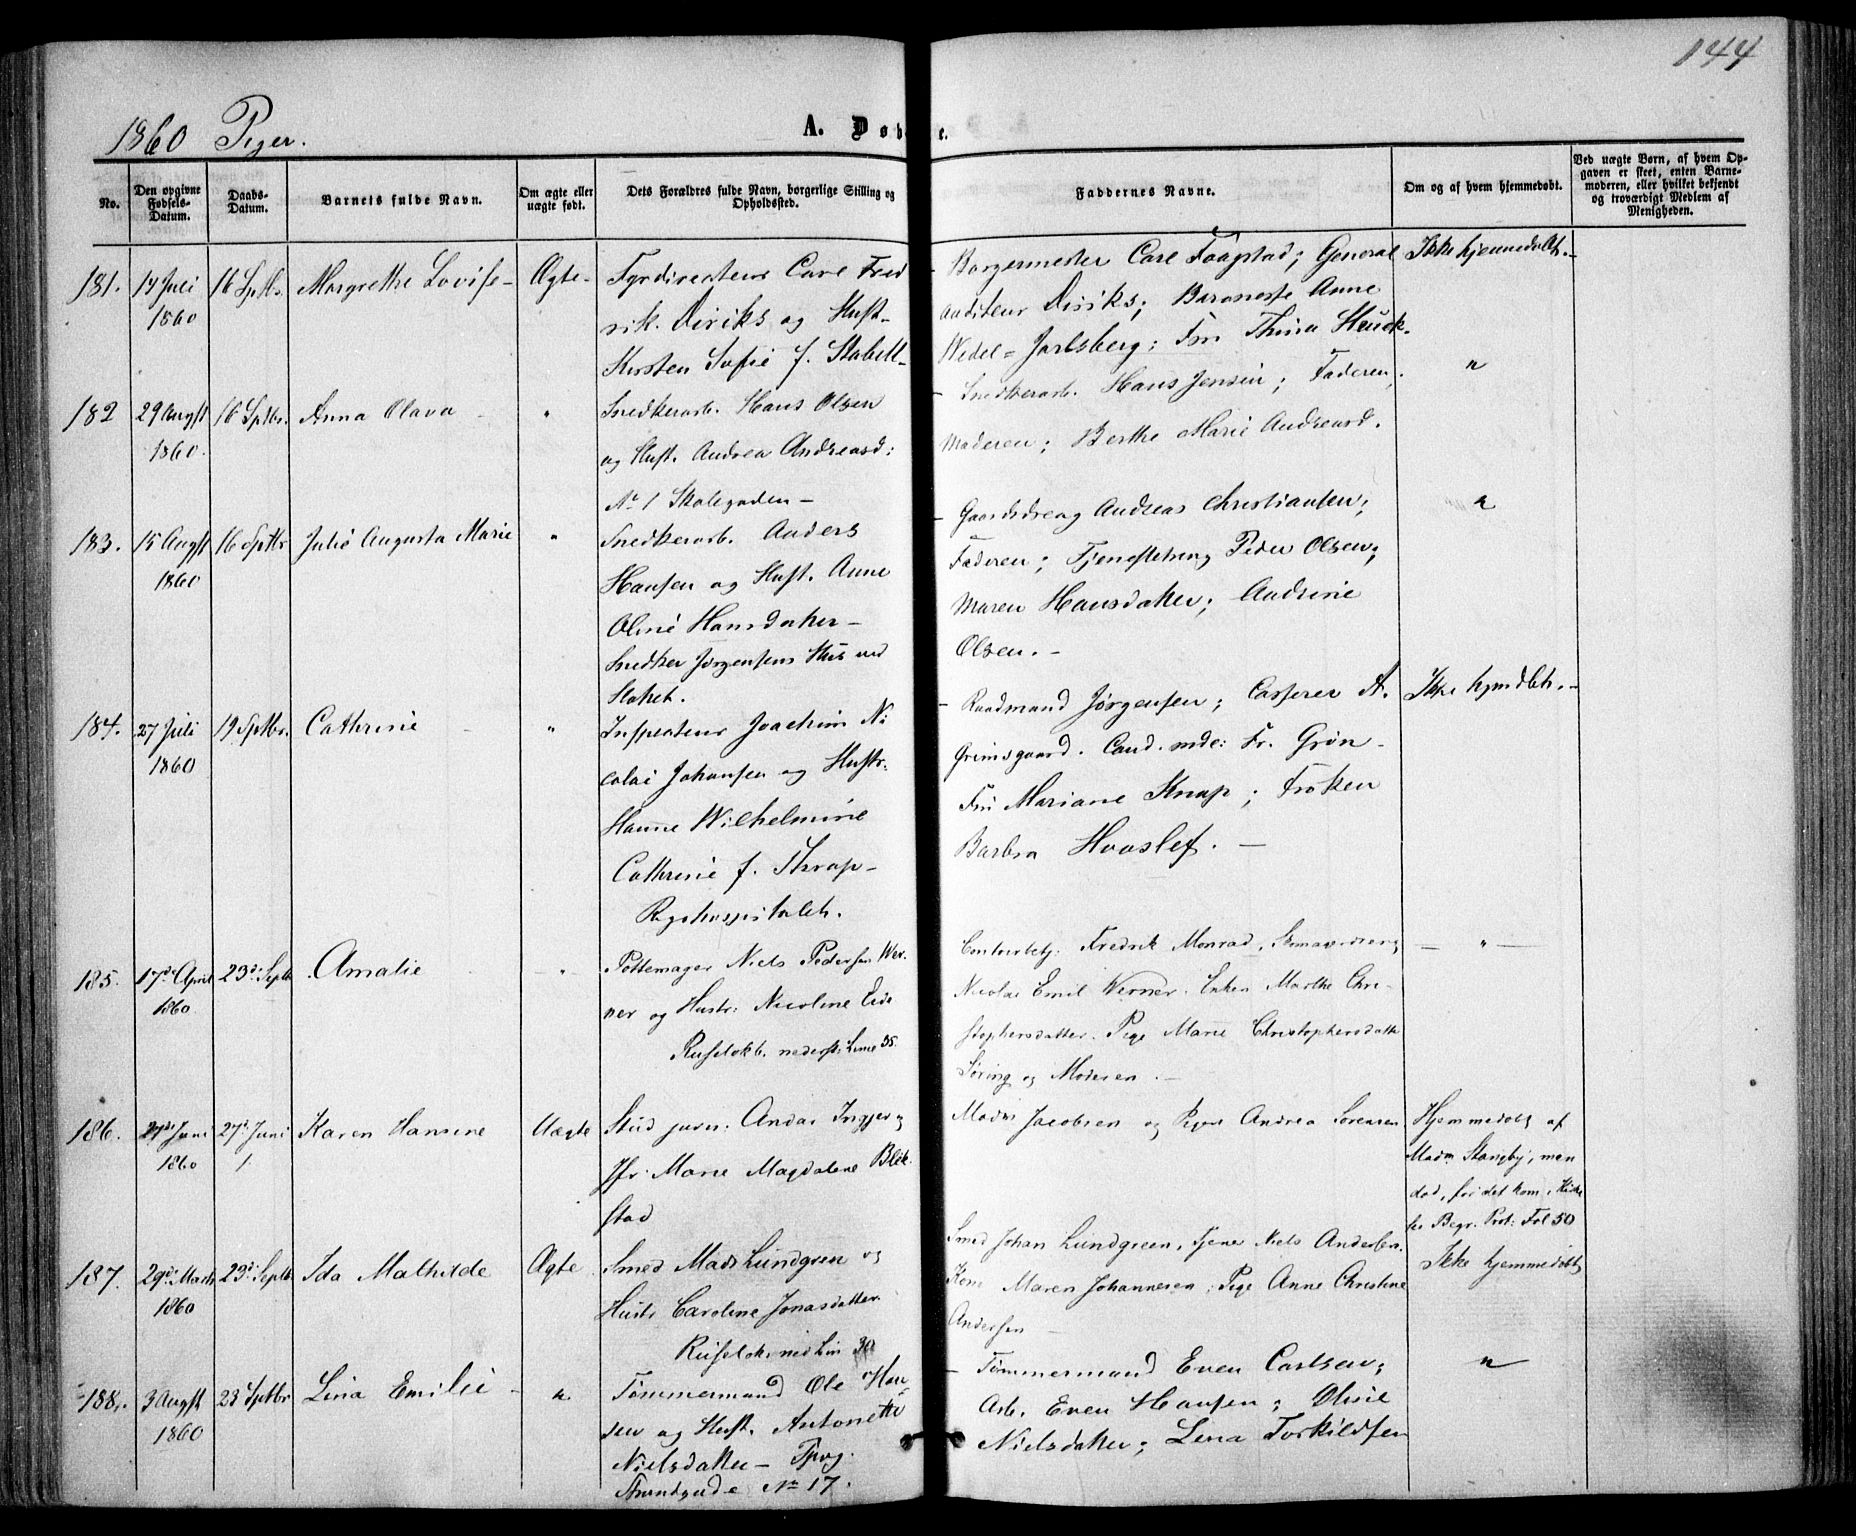 144
1860 Piger.
A. Døb e.
No.
Den opgivne Fødsels-Datum.
Daabs-Datum.
Barnets fulde Navn.
Om ægte eller uægte født.
Dets Forældres fulde Navn, borgerlige Stilling og Opholdssted.
Faddernes Navne.
Om og af hvem hjemmedøbt.
Ved uægte Børn, af hvem Opgaven er skeet, enten Barnemoderen, eller hvilket bekjendt og troværdigt Medlem af Menigheden.
181. 14 Juli 1860 16 Sptbr. Margrethe Lovise Ægte
Fyrdirecteur Carl Fred
rik Diriks og Hust.
Kirsten Sofie f. Stabell
Borgermester Carl Faagstad; General
auditeur Diriks; Baronesse Anne
Wedel=Jarlsberg; Fru Thina
Ikke hjemmedøbt.
182 29 Augst 1860. 16 Sptbr. Anna Olava "
Snedkerarb. Hans Olsen
og Hust. Andrea Andreasd:
No 1 Skolegaden
Snedkerarb. Hans Jensen; Faderen;
Moderen; Berthe Marie Andreasd.
"
183. 15 Augst 1860 16 Sptbr Julie Augusta Marie "
Snedkerarb. Anders
Hansen og Hust. Anne
Oline Hansdatter
Snedker Jørgensens Hus ved
Gaardsdreng Andreas Christiansen;
Faderen; Tjenestedreng Peder Olsen;
Maren Hansdatter; Andrine
Olsen.
"
184. 27 Juli 1860 19 Sptbr. Cathrine "
Inspecteur Joachim Ni
colai Johansen og Hustr.
Hanne Wilhelmine
Cathrine f. Thrap
Rigshospitalet.
Raadmand Jørgensen; Casserer A.
Grimsgaard. Cand. med: Fr. Grøn
Fru Mariane Knap; Frøken
Barbra
Ikke hjmdbt.
185. 17de April 1860 23d: Septb Amalie "
Pottemager Niels Pedersen Wer
ner og Hustr: Nicoline
Ruseløkb. nederst. Linie 35
Contoirbetj. Fredrik Monrad,
Nicolai Emil Werner. Enken Marthe Chri
stophersdatter. Pige Marie Christophersdatter
og Moderen.
"
186. 27de Juni 1860 27d. Juni Karen Hansine Uægte
Stud. juris: Andas og
Jfr: Marie Magdalene Blik
stad
Madm Jacobsen og Pigen Andrea Sørensen
Hjemmedøbt af
Madm Stangby, men
død, før det kom i Kirke
se Begr. Prot: Fol 50
187. 29d: Marts 1860 23d: Septb Ida Mathilde Ægte
Smed Mads Lundgren og
Hustr Caroline Jonasdatter
Ruseløk. ned Lin 30
Smed Johan Lundgreen, Tjener Niels Andersen.
Kone Maren Johannesen; Pige Anne Christine
Andersen
Ikke hjemmedøbt
188. 3 Augst 1860 23 Sptbr Lina Emilie "
Tømmermand Ole Han
sen og Hust. Antonette
Nielsdatter
Strandgade No 17.
Tømmermand Even Carlsen;
Arb. Even Hansen;
Nielsdatter; Lena Torkildsen
"